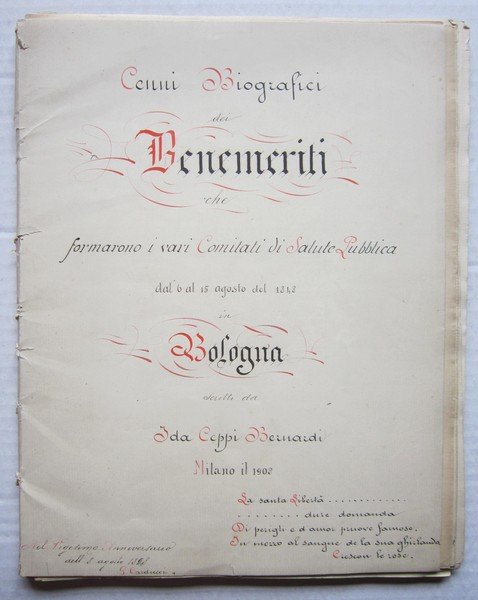 Cenni Biografici
dei
Benemeriti
che
formarono i vari Comitati di Salute Pubblica
dal 6 al 15 agosto del 1848
in
Bologna
scritti da
Ida Ceppi Bernardi
Milano il 1908
La santa Libertà ............
......... dure domanda
Di perigli e d'amor pruove famose.
In mezzo al sangue de la sua ghirlanda
Crescon le rose.
Nel Vigesimo Anniversario
dell' 8 agosto 1848
G. Carducci